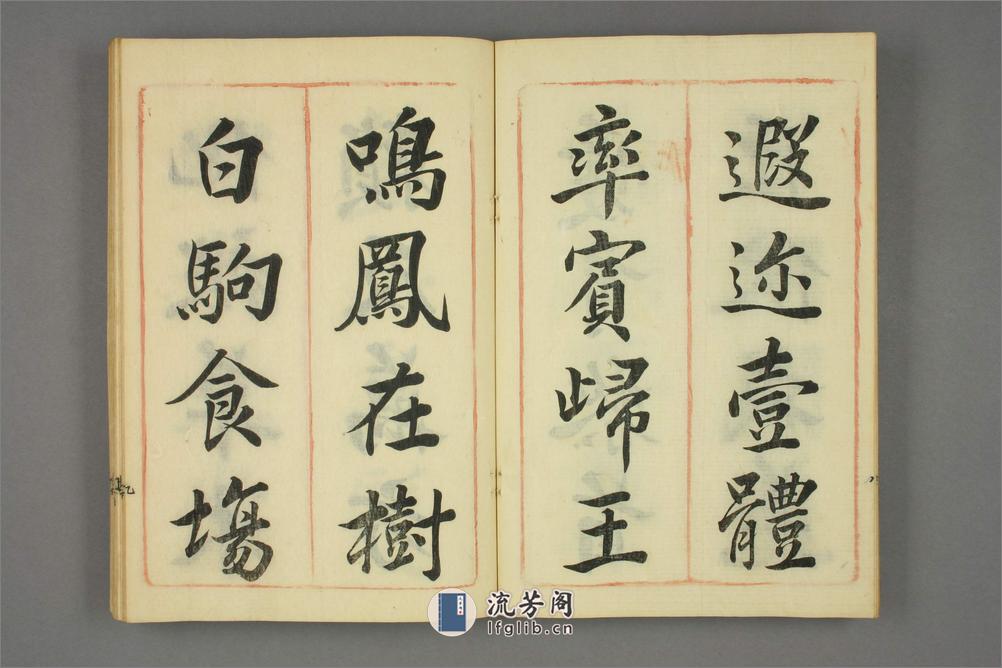 遐迩壹體
率賓歸王
鳴鳳在樹
白駒食場
流芳阁
lfglib.cn